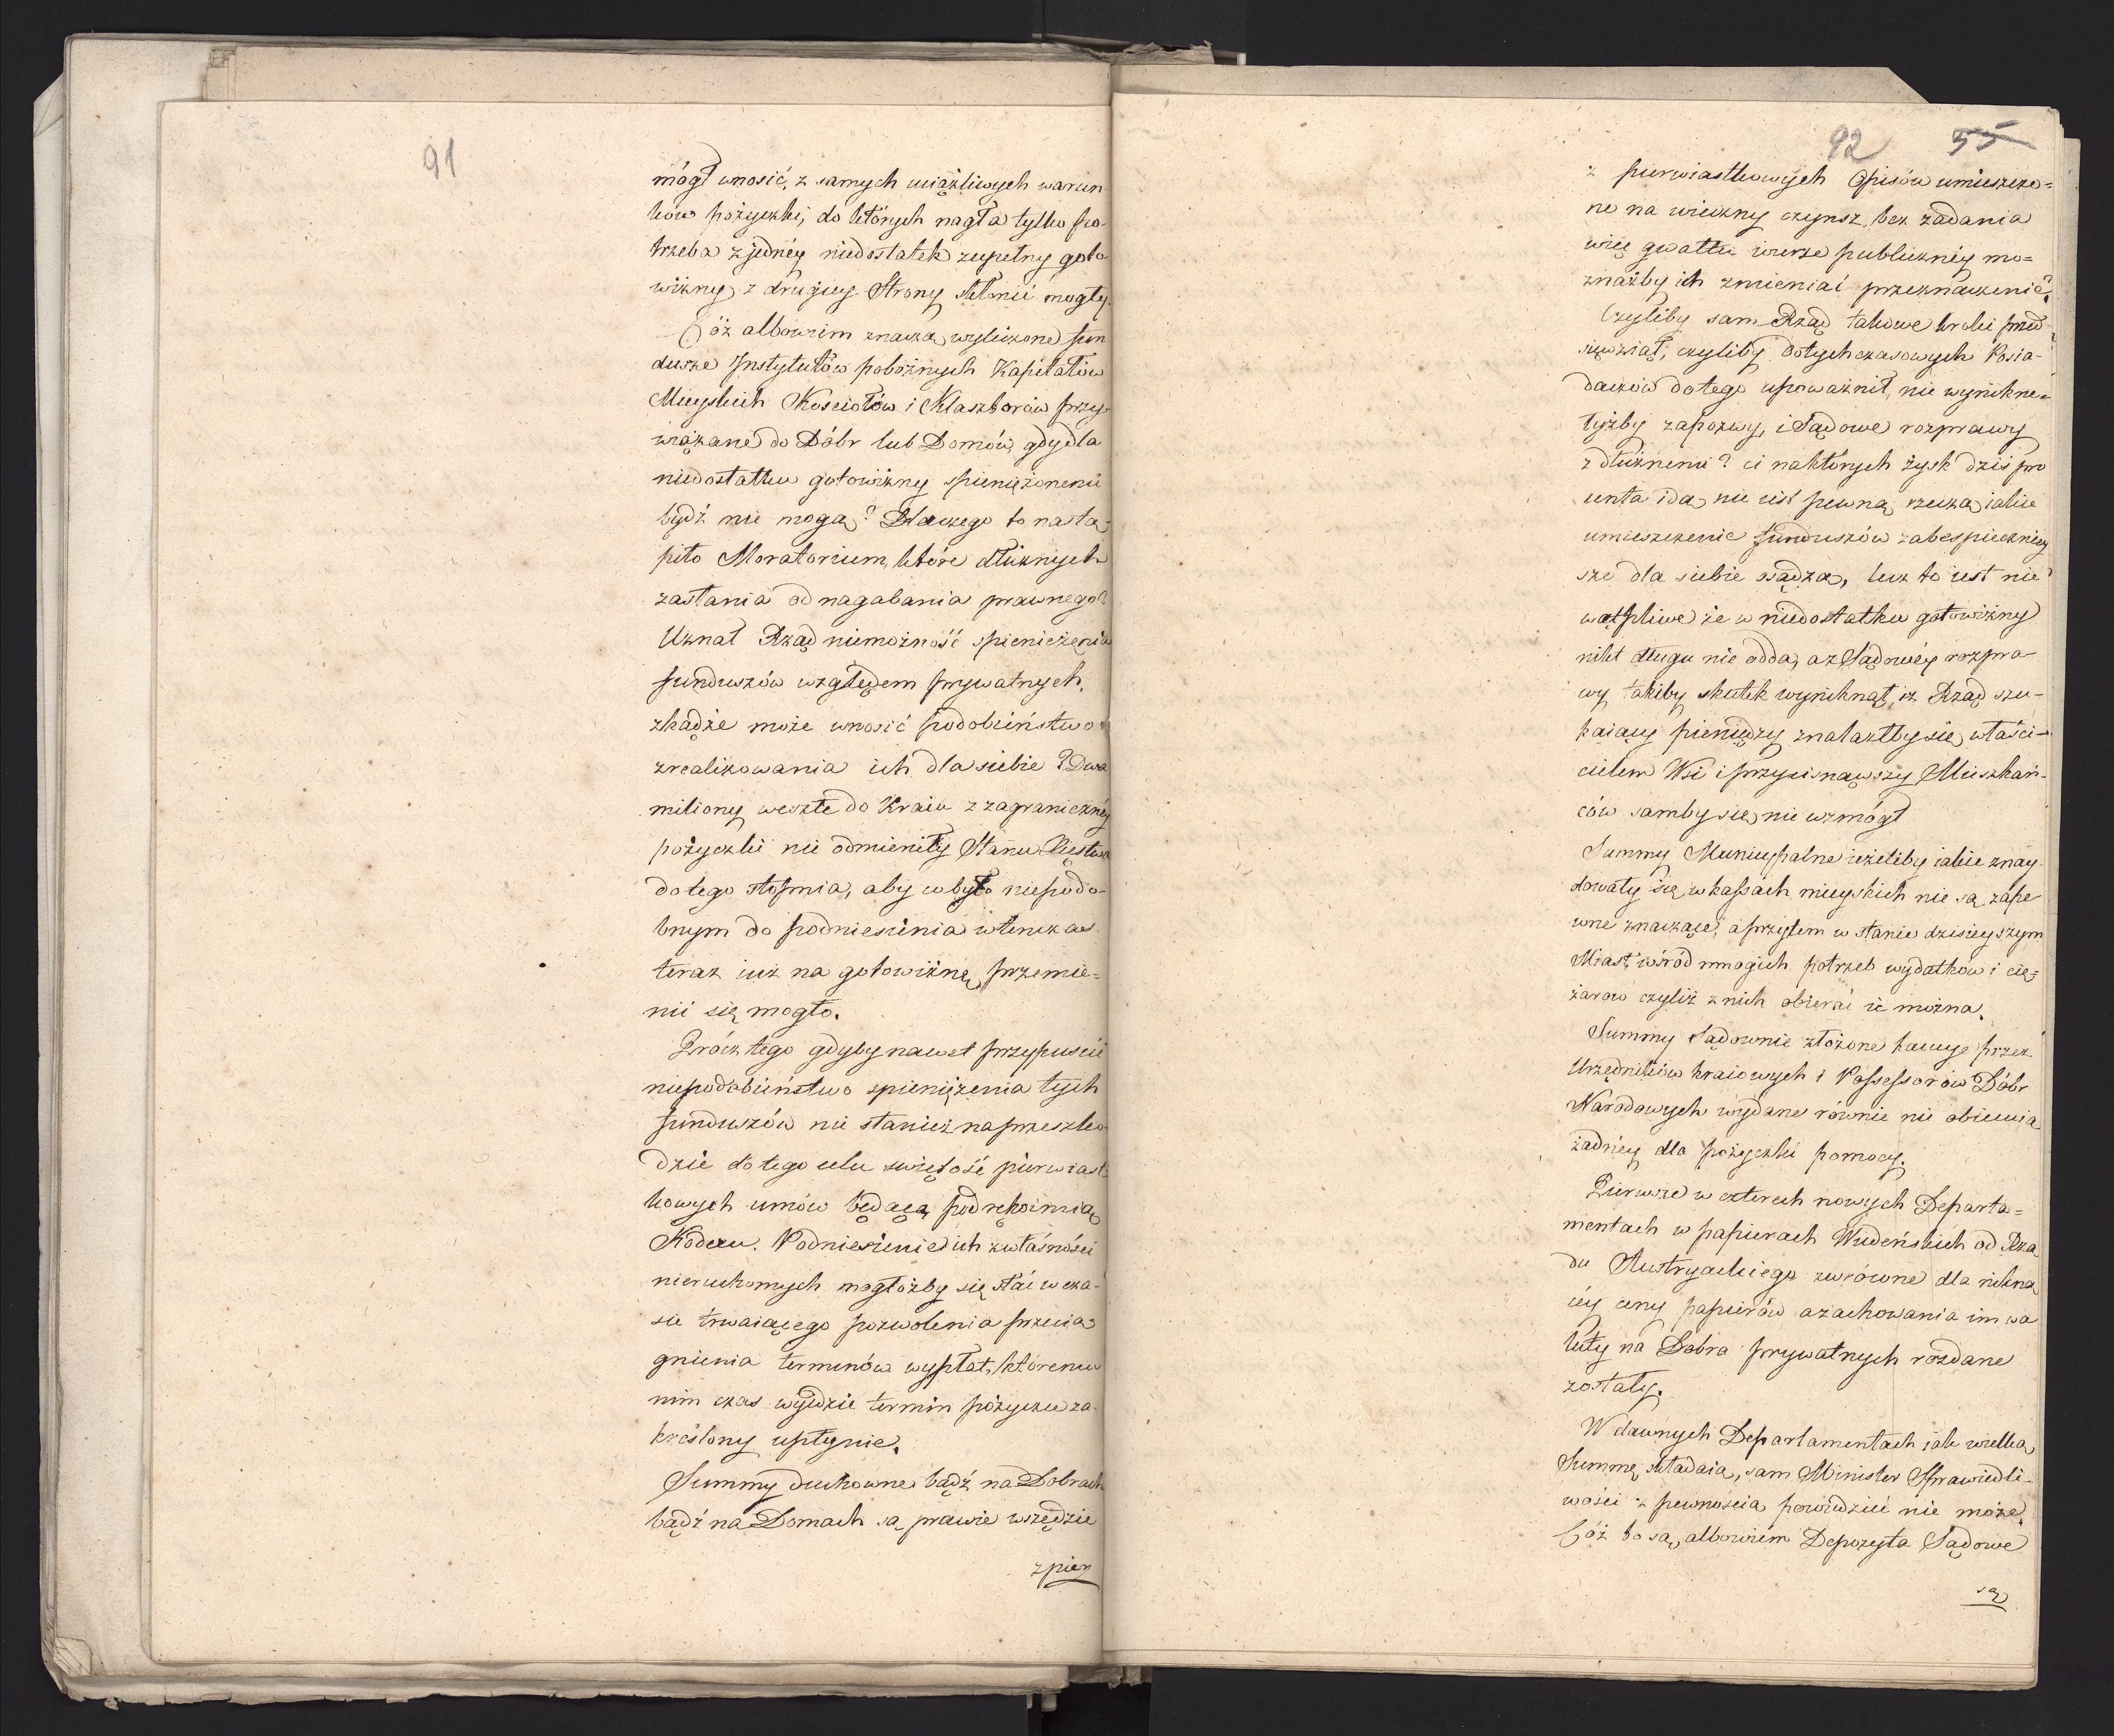 91
mógł wnosić, z samych uciążliwych warun-
ków pożyczki, do których nagła tylko po-
trzeba z jednéy niedostatek zupełny goto
wizny z drugiey Strony skłonić mogły.
Cóż albowiem znaczą wyliczone fun
dusze Instytutów pobożnych Kapitałów
Mieyskich Kościołów i Klasztorów przy-
wiązane do Dóbr lub Domów, gdy dla
niedostatku gotowizny spieniężonemi
bydź nie mogą? Dlaczego to nastą-
piło Moratorium, które dłużnych
zasłania od nagabania prawnego?
Uznał Rząd niemożność spieniężenia
funduszów względem prywatnych,
zkądże może wnosić podobieństwo
zrealizowania ich dla siebie? Dwa
miliony weszłe do Kraiu z zagranicznéy
pożyczki nie odmieniły Stanu Xięstwa
do tego stopnia, aby co było niepodo-
bnym do podniesienia wtenczas
teraz iuż na gotowiznę przemie-
nić się mogło.
Prócz tego gdyby nawet przypuścić
niepodobieństwo spieniężenia tych
funduszów nie stanież na przeszko-
dzie do tego celu świętość pierwiast-
kowych umów będącą pod rękoimią
Kodexu. Podniesienie ich z własności
nieruchomych mogłożby się stać w cza-
sie trwaiącego pozwolenia przecią
gnienia terminów wypłat, któremu
nim czas wyidzie termin pożyczce za-
kreślony upłynie.
Summy duchowne bądź na Dobrach
bądź na Domach są prawie wszędzie
z pier
92 55
z pierwiastkowych Opisów umieszczo-
ne na wieczny czynsz, bez zadania
więc gwałtu wierze publicznéy mo-
żnażby ich zmieniać przeznaczenie?
Czyliby sam Rząd takowe kroki przed
sięwziął; czyliby dotychczasowych Posia-
daczów do tego upoważnił, nie wynikne-
łyżby zapozwy, i Sądowe rozprawy
z dłużnemi? ci na których zysk dziś pro
centa idą nie iest pewną rzeczą iakie
umieszczenie funduszów zabespieczniey
sze dla siebie osądzą, lecz to iest nie
wątpliwe że w niedostatku gotowizny
nikt długu nie odda, a z Sądowéy rozpra-
wy takiby skutek wyniknął, iż Rząd szu-
kaiący pieniędzy znalazłby się właści-
cielem Wsi i przycisnąwszy Mieszkań-
ców samby się nie wzmógł
Summy Municypalne ieżeliby iakie znay-
dowały się w kassach mieyskich nie są zape
wne znaczące, a przytem w stanie dzisieyszym
Miast, wśród mnogich potrzeb wydatków i cię-
żarow czyliż z nich obierać ie można.
Summy Sądownie złożone kaucye przez
Urzędników kraiowych i Possessorów Dóbr
Narodowych wydane równie nie obiecuią
żadnéy dla pożyczki pomocy.
Pierwsze w czterech nowych Departa-
mentach w papierach Wiedeńskich od Rzą
du Austryackiego zwrócone dla nikną
céy ceny papierów a zachowania im wa
luty na Dobra prywatnych rozdane
zostały.
W dawnych Departamentach iak wielką
Summę składaią, sam Minister Sprawiedli-
wości z pewnością powiedzieć nie może.
Cóż to są albowiem Depozyta Sądowe
są